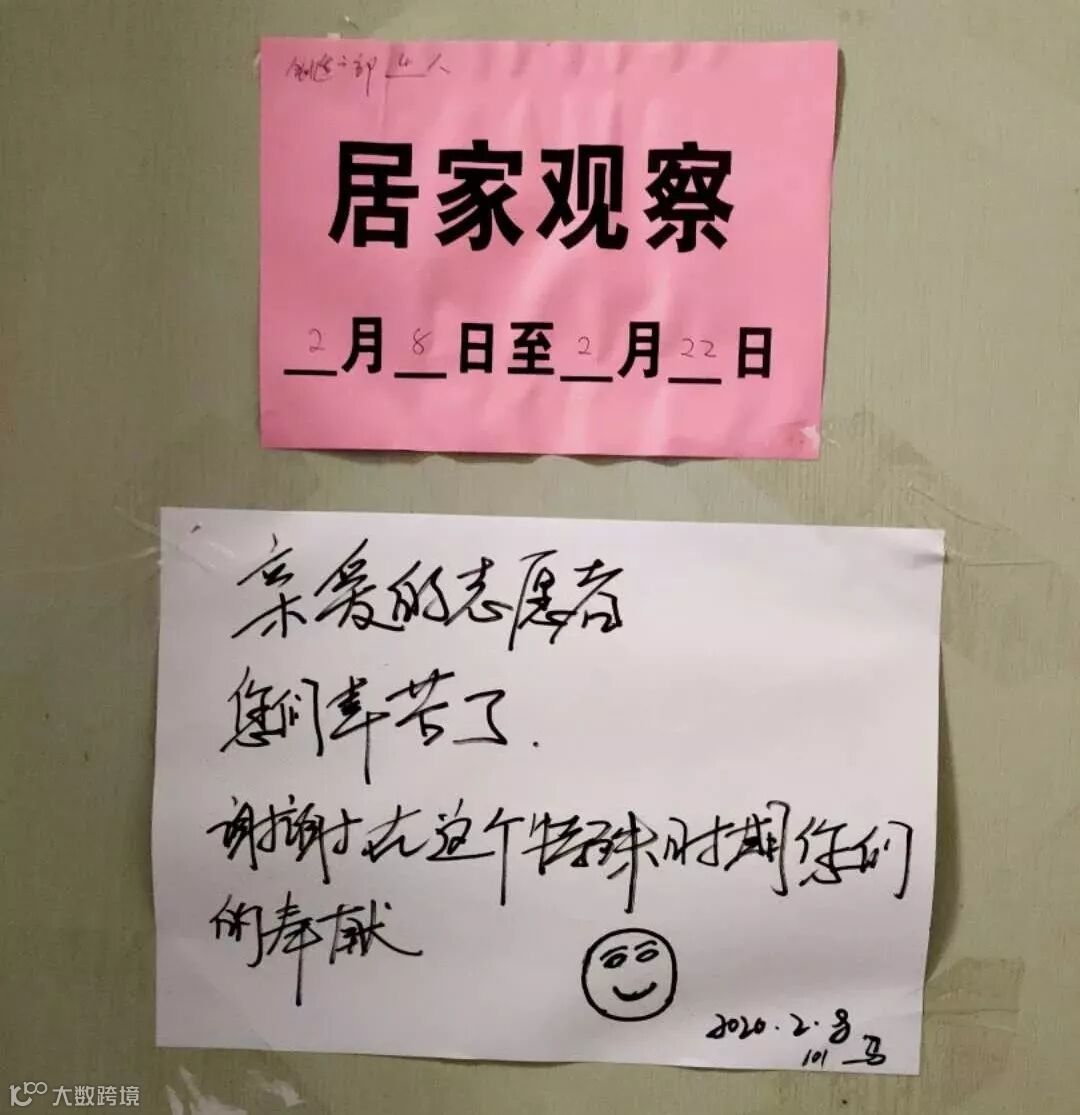 4人
居家观察
2月8日至2月22日
亲爱的志愿者
您们辛苦了.
谢谢在这个特殊时期您们
的奉献
2020.2.8
101 马
大数跨境